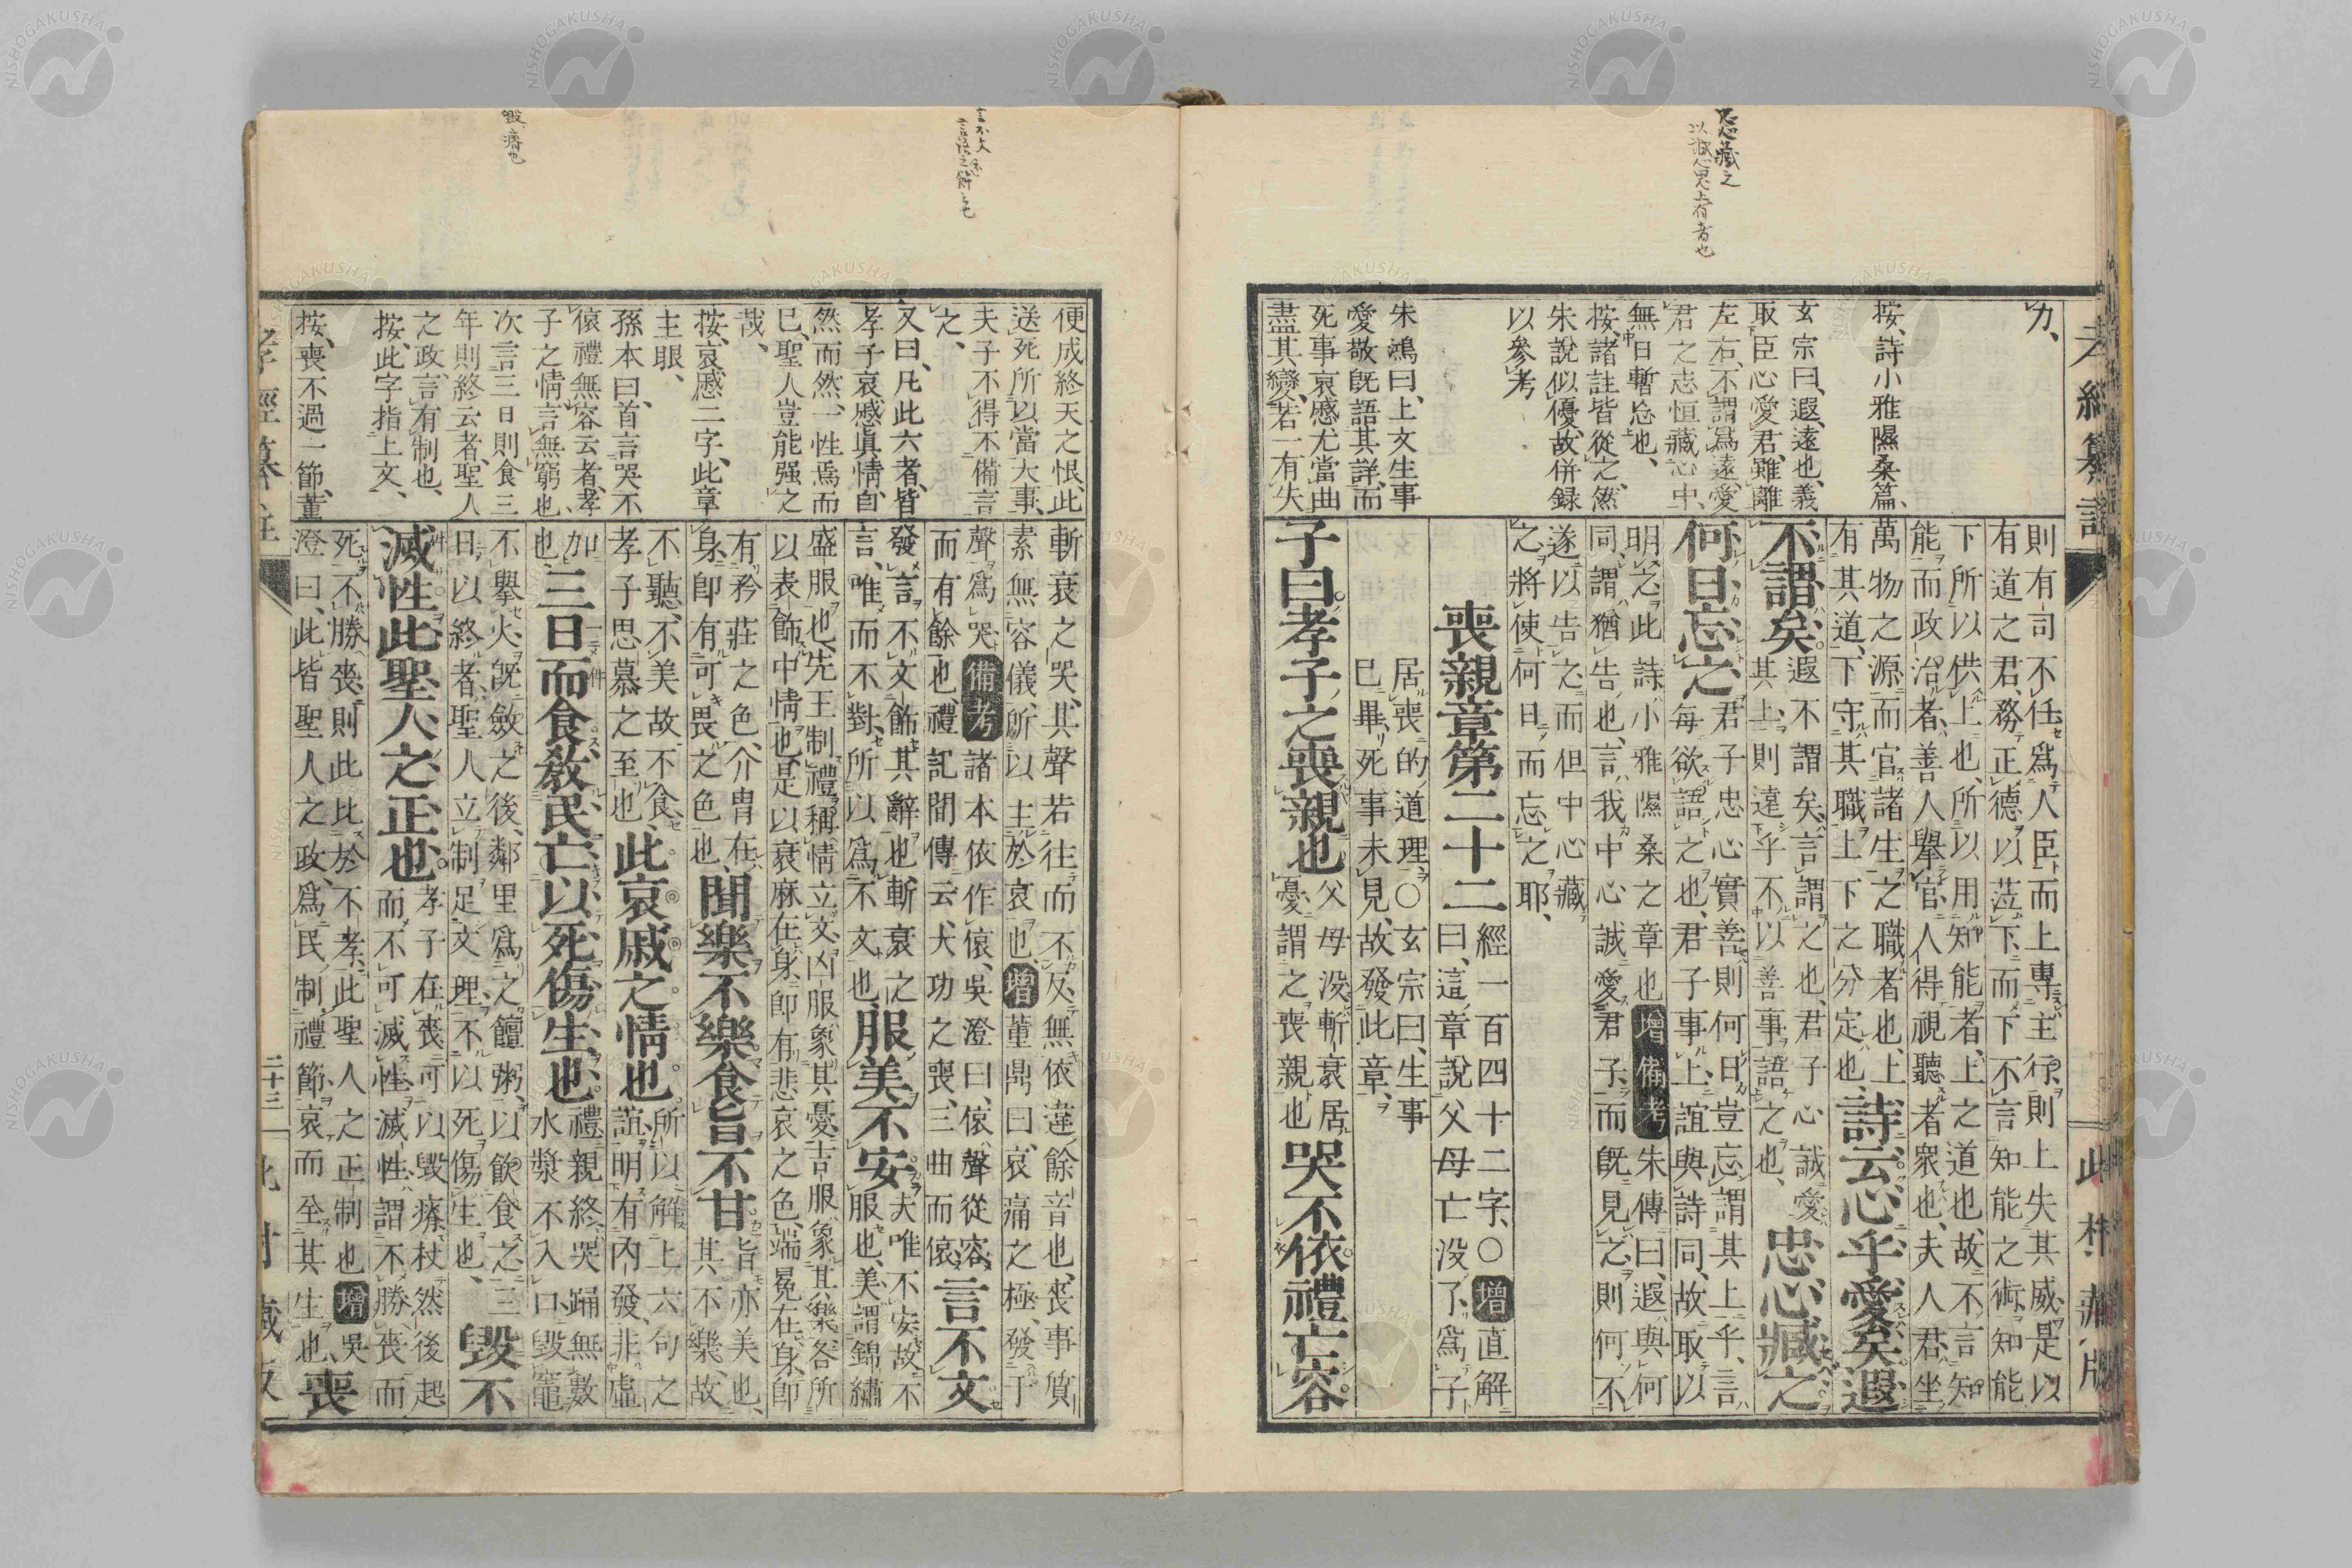 忠心藏之
以誠心思上者者也
力、
按、詩小雅隰桑篇、
玄宗曰、遐、遠也、義
取臣心愛君、雖離
左右、不謂爲遠、愛
君之志恒藏心中、
無日暫忘也、
按、諸註皆從之、然
朱說似優、故併録
以參考
朱鴻曰、上文生事
愛敬既語其詳、而
死事哀慼尤當曲
盡其變、若一有失
則有司不任爲人臣而上專主行則上失其威是以
有道之君、務正德以莅下、而下不言知能之術知能
下所以供上也、所以用知能者、上之道也、故不言知
能而政治者、善人擧官、人得視聽者衆也、夫人君坐
萬物之源而官諸生之職者也、上
有其道、下守其職、上下之分定也、
詩云心乎愛矣遐
不謂矣
遐不謂矣、言謂之也、君子心誠愛
其上、則遠乎不以善事語之也、
忠心臧之
何日忘之
君子忠心實善、則何日豈忘、謂其上乎、言
每欲語之也、君子事上、誼與詩同、故取以
明之、此詩小雅隰桑之章也 增備考 朱傳曰、遐與何
同、謂猶告也、言我中心誠愛君子、而既見之、則何不
遂以告之、而但中心藏
之、將使何日而忘之耶、
喪親章第二十二
經一百四十二字、〇 增 直解
曰、這章說父母亡没了、爲子
居喪的道理〇玄宗曰、生事
已畢、死事未見、故發此章、
子曰孝子之喪親也
父母没、斬衰居
憂、謂之喪親也
哭不依禮亡容
孝經纂註
此村藏版
便成終天之恨、此
送死所以當大事、
夫子不得不備言
之、
又曰、凡此六者、皆
孝子哀慼眞情、自
然而然、一性焉而
已、聖人豈能强之
哉、
按、哀慼二字、此章
主眼、
孫本曰、首言哭不
偯禮無容云者、孝
子之情言無窮也、
次言三日則食三
年則終云者、聖人
之政、言有制也、
按、此字指上文、
按、喪不過一節、董
斬衰之哭、其聲若往而不反、無依違餘音也、喪事質
素無容儀、所以主於哀也、增 董鼎曰、哀痛之極、發于
聲爲哭 備考 諸本依作偯、吳澄曰、偯、聲從容、
而有餘也、禮記間傳云、大功之喪、三曲而偯、
言不文
發言不文飾其辭也、斬衰之
言、唯而不對、所以爲不文也、
服美不安
夫唯不安、故不
服也、美謂錦繡
盛服也、先王制禮、稱情立文、凶服象其憂、吉服象其樂、各所
以表飾中情也、是以衰麻在身、卽有悲哀之色、端冕在身、卽
有矜莊之色、介冑在
身、卽有可畏之色也、
聞樂不樂食旨不甘
旨亦美也、
其不樂、故
不聽、不美故不食、
孝子思慕之至也、
此哀戚之情也
所以解上六句之
誼、明有內發、非虛
加
也、
三日而食敎民亡以死傷生也
禮親終哭踊無數
水漿不入口、毀竈
不擧火、旣斂之後、鄰里爲之饘粥、以飲食之、三
日以終者、聖人立制足文理、不以死傷生也、
毀不
滅性此聖人之正也
孝子在喪、可以毀瘠、杖然後起
而不可滅性、滅性、謂不勝喪而
死、不勝喪、則此比於不孝、此聖人之正制也 增 吳
澄曰、此皆聖人之政、爲民制禮節哀而全其生也、
喪
言不文
言語之餝之毛
毀、瘠也
二十三